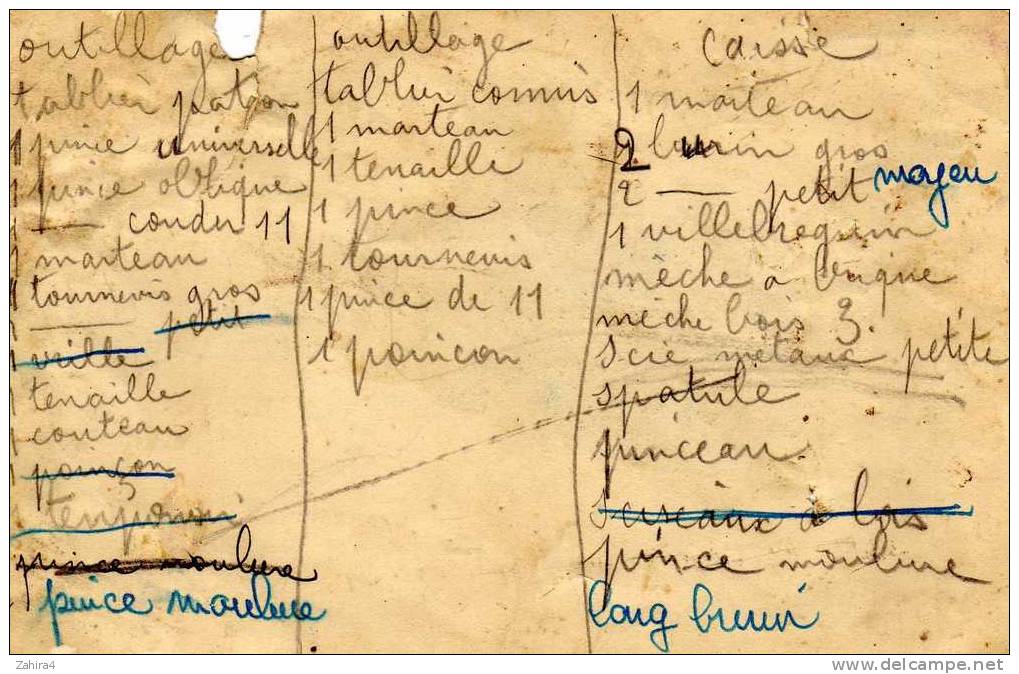 outillage
tablier patron
1 pince universelle
1 pince oblique
1 — couder 11
1 marteau
1 tournevis gros
1 — petit
1 vrille
1 tenaille
1 couteau
1 poinçon
1
pince moulure
pince moulure
outillage
tablier comis
1 marteau
1 tenaille
1 pince
1 tournevis
1 pince de 11
1 poinçon
caisse
1 marteau
2 burin gros
2 — petit moyen
1 villebrequin
mèche a brique
mèche bois 3.
scie metaux petite
spatule
pinceau
siseaux à bois
pince moulure
long burin
Zahira4
www.delcampe.net